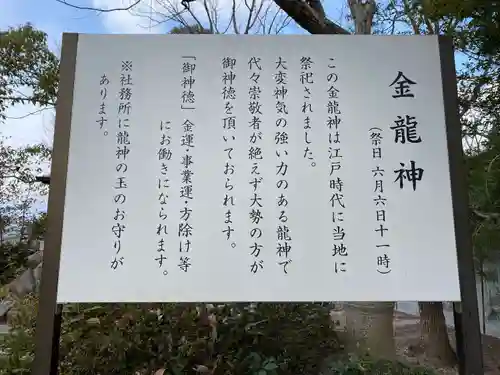 金龍神
（祭日 六月六日十一時）
この金龍神は江戸時代に当地に
祭祀されました。
大変神気の強い力のある龍神で
代々崇敬者が絶えず大勢の方が
御神徳を頂いておられます。
「御神徳」金運・事業運・方除け等
にお働きになられます。
※社務所に龍神の玉のお守りが
あります。